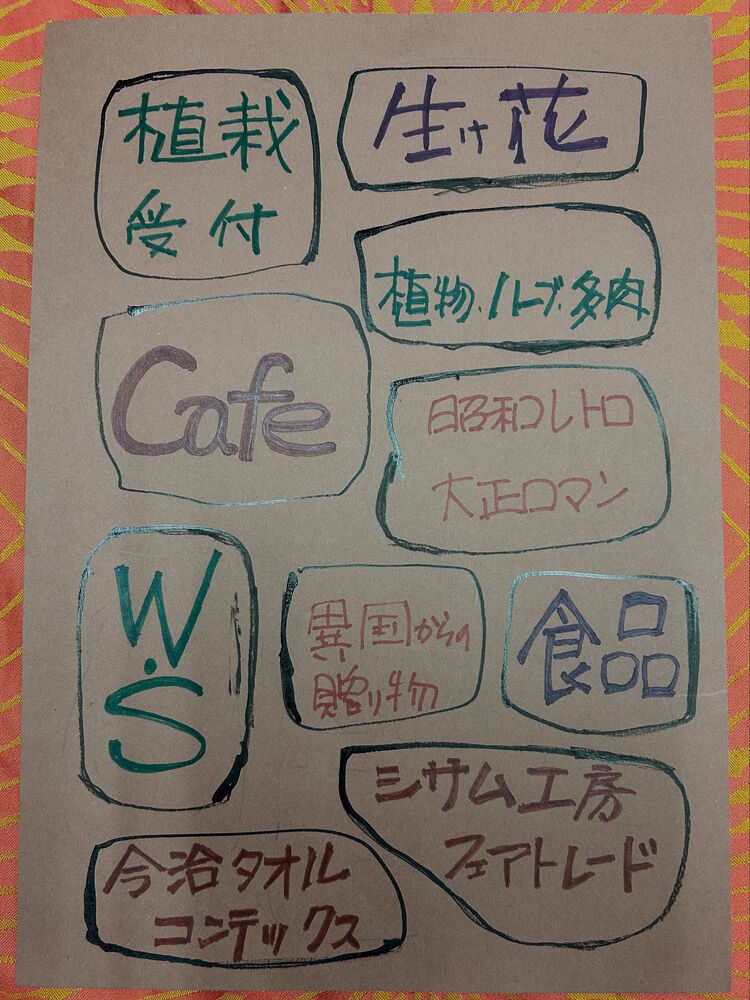 植栽
受付
生け花
植物、ハーブ、多肉
Cafe
昭和レトロ
大正ロマン
W.S
異国からの
贈り物
食品
シサム工房
フェアトレード
今治タオル
コンテックス